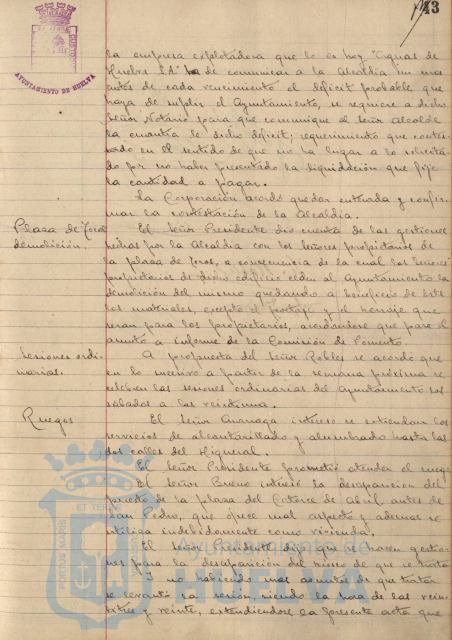 43
AYUNTAMIENTO DE HUELVA
la empresa explotadora que lo es hoy "Aguas de
Huelva S.A." ha de comunicar a la Alcaldía un mes
antes de cada vencimiento el déficit probable que
haya de suplir el Ayuntamiento, se requiere a dicho
Señor Notario para que comunique al Señor Alcalde
la cuantía de dicho déficit; requerimiento que contes-
tado en el sentido de que no ha lugar a lo solicita-
do por no haber presentado la liquidación que fije
la cantidad a pagar.
La Corporación acordó quedar enterada y confir-
mar la contestación de la Alcaldía.
Plaza de Toros
demolición.
El Señor Presidente dio cuenta de las gestiones
hechas por la Alcaldía con los Señores propietarios de
la plaza de toros, a consecuencia de la cual los Señores
propietarios de dicho edificio ceden al Ayuntamiento la
demolición del mismo quedando a beneficio de este
los materiales, excepto el y el herraje que
seran para los propietarios, acordandose que pase el
asunto a informe de la Comisión de Fomento.
Sesiones ordi-
narias.
A propuesta del Señor Robles se acordó que
en lo a partir de la semana próxima se
celebren las sesiones ordinarias del Ayuntamiento los
sábados a las veintiuna.
Ruegos
El Señor interesó se extiendan los
servicios de alcantarillado y alumbrado hasta las
dos calles del Higueral.
El Señor Presidente prometió atender el ruego
El Señor Bueno interesó la desaparición del
puesto de la plaza del Catorce de Abril antes de
San Pedro, que ofrece mal aspecto y ademas se
utiliza indebidamente como vivienda.
El Señor Presidente dijo que se haran gestio-
nes para la desaparición del kiosco de que se trata
Y no habiendo mas asuntos de que tratar
se levantó la sesión, siendo la hora de las vein-
titres y veinte, extendiendose la presente acta que
ET TERRAE
PORTUS MARIS
CUSTODIA
Ayuntamiento de
HUELVA